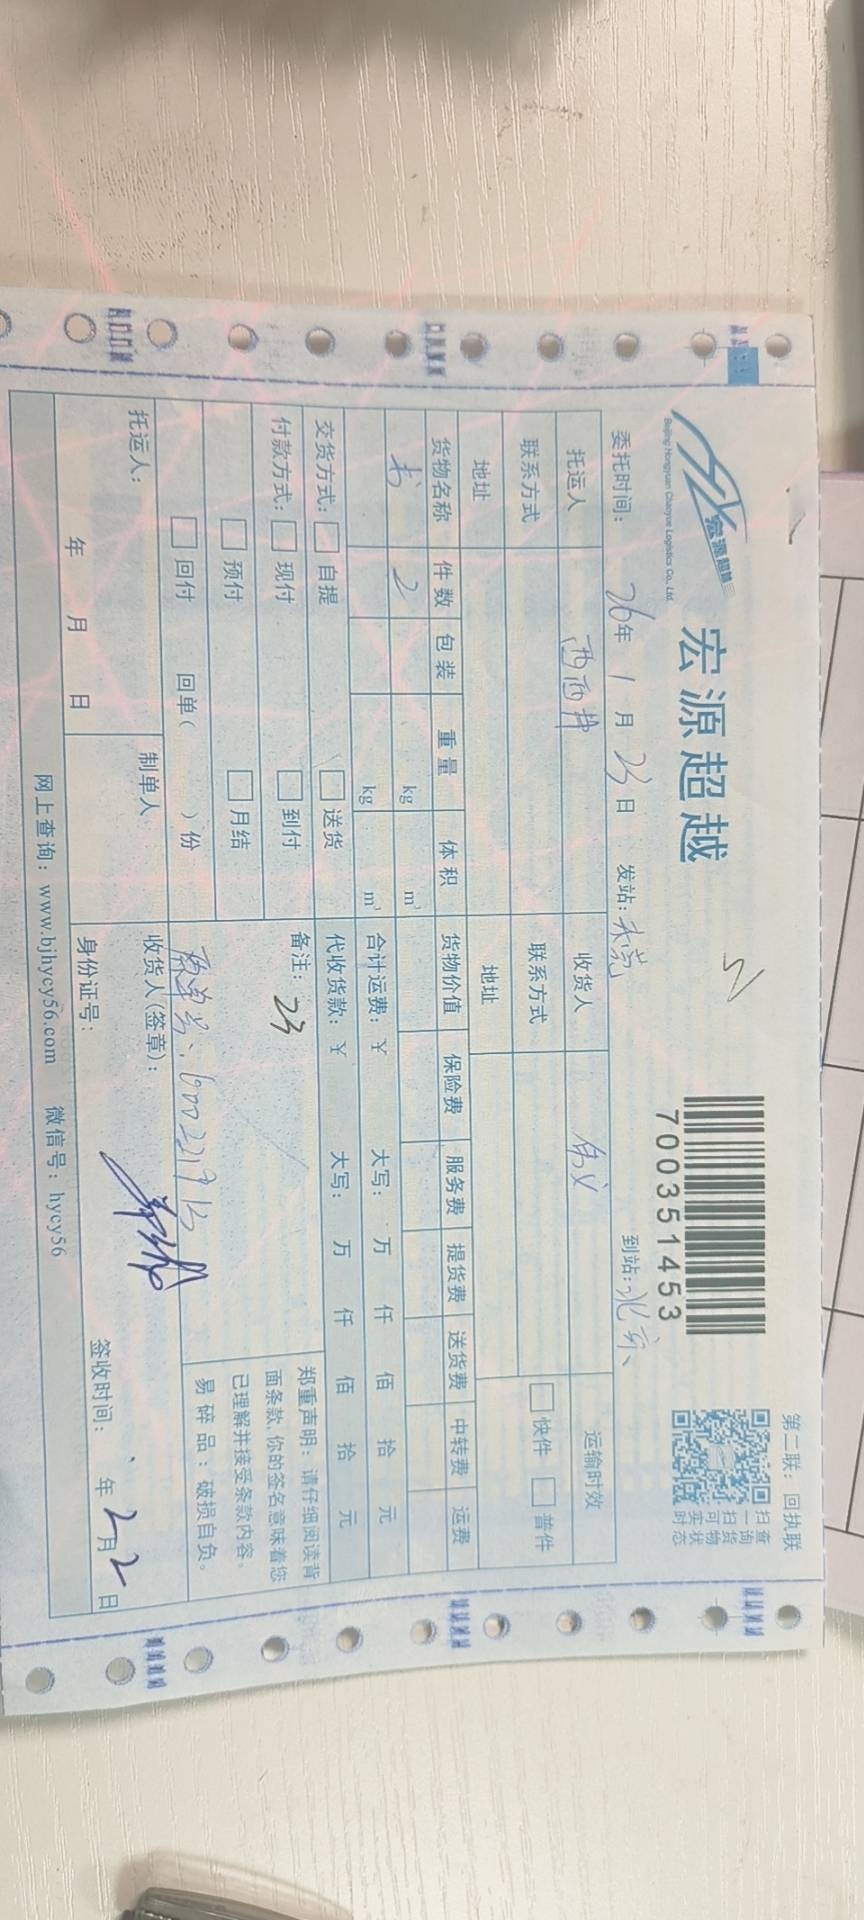 第二联：回执联
宏源超越
Beijing Hongyuan Chaoyue Logistics Co., Ltd.
宏源超越
700351453
扫一扫可实时
查询货物状态
委托时间： 26年 1月 23日 发站： 东莞 到站： 北京
托运人 西西弗 收货人 运输时效
联系方式 联系方式 快件 普件
地址 地址
货物名称 件数 包装 重量 体积 货物价值 保险费 服务费 提货费 送货费 中转费 运费
书 2 kg m³
kg m³ 合计运费：￥ 大写： 万 仟 佰 拾 元
交货方式： 自提 送货 代收货款：￥ 大写： 万 仟 佰 拾 元
付款方式： 现付 到付 备注： 23
预付 月结
回付 回单（ ）份
郑重声明：请仔细阅读背
面条款，你的签名意味着您
已理解并接受条款内容。
易碎品：破损自负。
托运人： 制单人 收货人(签章)：
年 月 日 身份证号： 签收时间： 年 2月 2日
网上查询：www.bjhycy56.com 微信号：hycy56